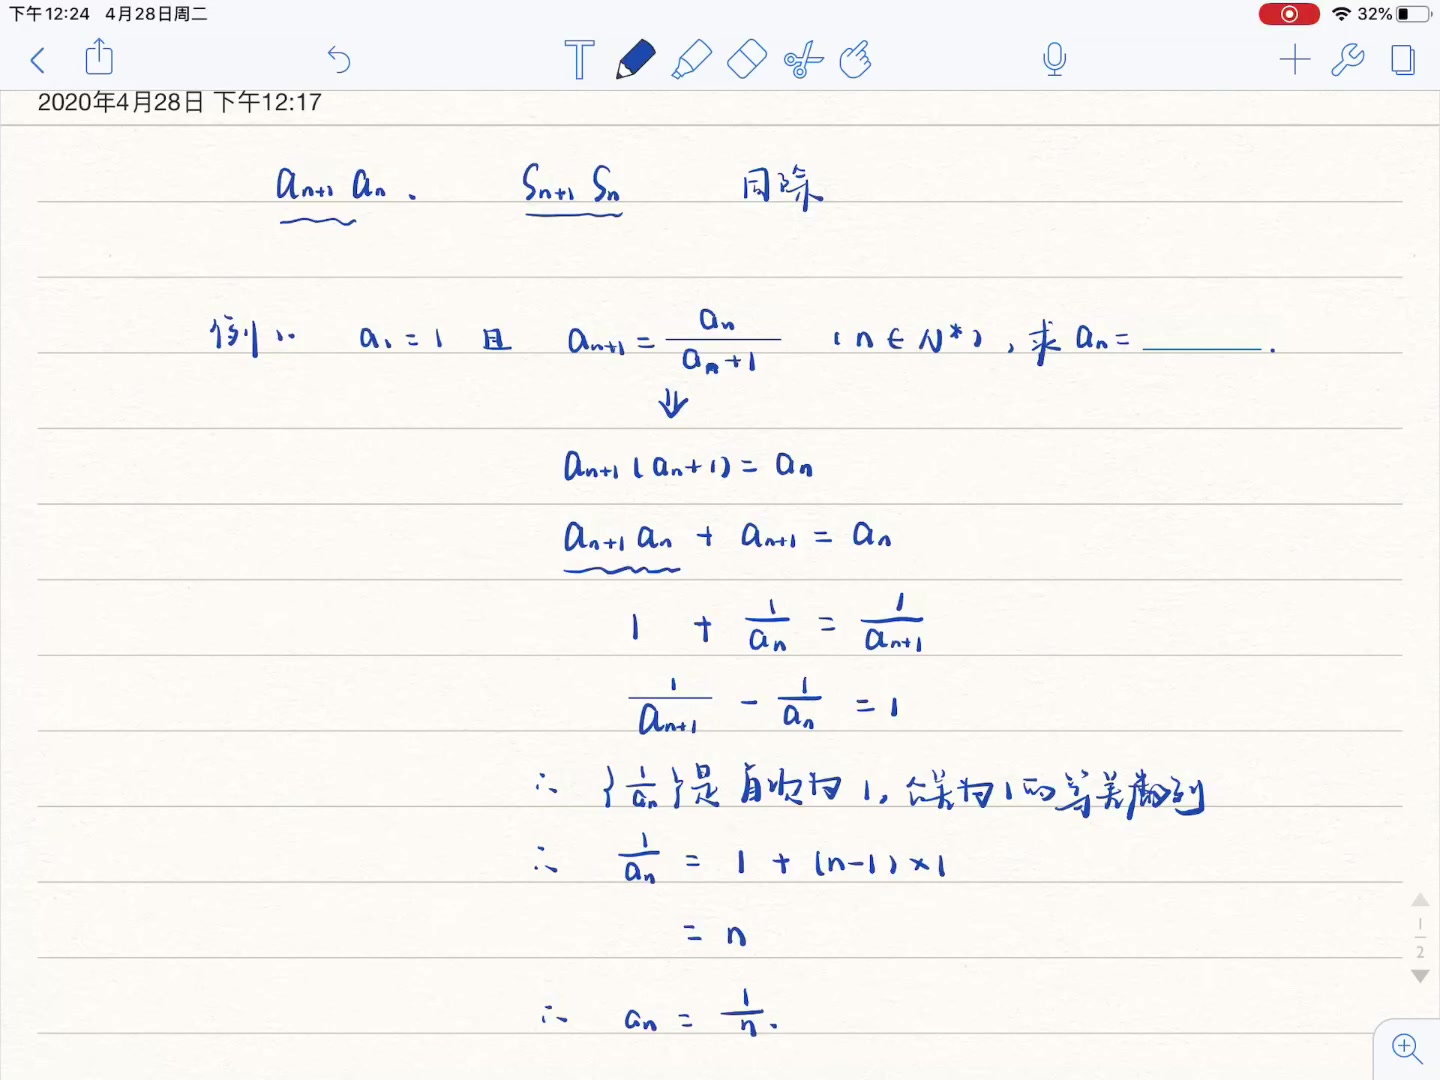 下午12:24 4月28日周二 32%
T
2020年4月28日 下午12:17
aₙ₊₁ aₙ. Sₙ₊₁ Sₙ 同除
例1: a₁ = 1 且 aₙ₊₁ = aₙ/(aₙ+1) (n ∈ N*), 求 aₙ = ______.
⇓
aₙ₊₁(aₙ+1) = aₙ
aₙ₊₁ aₙ + aₙ₊₁ = aₙ
1 + 1/aₙ = 1/aₙ₊₁
1/aₙ₊₁ - 1/aₙ = 1
∴ {1/aₙ}是首项为1,公差为1的等差数列
∴ 1/aₙ = 1 + (n-1)×1
= n
∴ aₙ = 1/n.
1
2